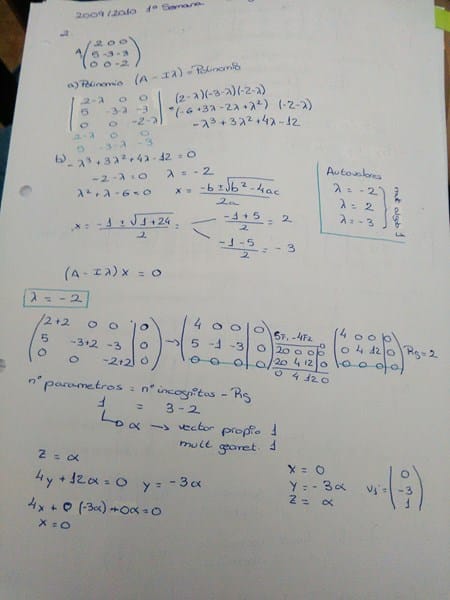 2009/2010 1ª Semana
2.
A (2 0 0
5 -3 -3
0 0 -2)
a) Polinomio (A - Iλ) = Polinomio
|2-λ 0 0| (2-λ)(-3-λ)(-2-λ)
|5 -3-λ -3| =(-6+3λ-2λ+λ²) (-2-λ)
|0 0 -2-λ| -λ³+3λ²+4λ-12
2-λ 0 0
5 -3-λ -3
b) -λ³+3λ²+4λ-12=0
-2-λ=0 λ=-2
λ²+λ-6=0 x = -b±√b²-4ac / 2a
x = -1±√1+24 / 2 = -1+5 / 2 = 2
-1-5 / 2 = -3
Autovalores
λ = -2
λ = 2
λ = -3
(A - Iλ) x = 0
λ = -2
(2+2 0 0 | 0) → (4 0 0 | 0) 5F1 - 4F2 (4 0 0 0)
(5 -3+2 -3 | 0) (5 -1 -3 | 0) 20 0 0 0 (0 4 12 0) Rg=2
(0 0 -2+2 | 0) (0 0 0 0) 20 4 12 0 (0 0 0 0)
0 4 12 0
nº parametros = nº incognitas - Rg
1 = 3 - 2
α → vector propio 1
mult geomet. 1
z = α
4y + 12α = 0 y = -3α
4x + 0 (-3α) + 0α = 0
x = 0
x = 0
y = -3α
z = α
V1 = (0
-3
1)